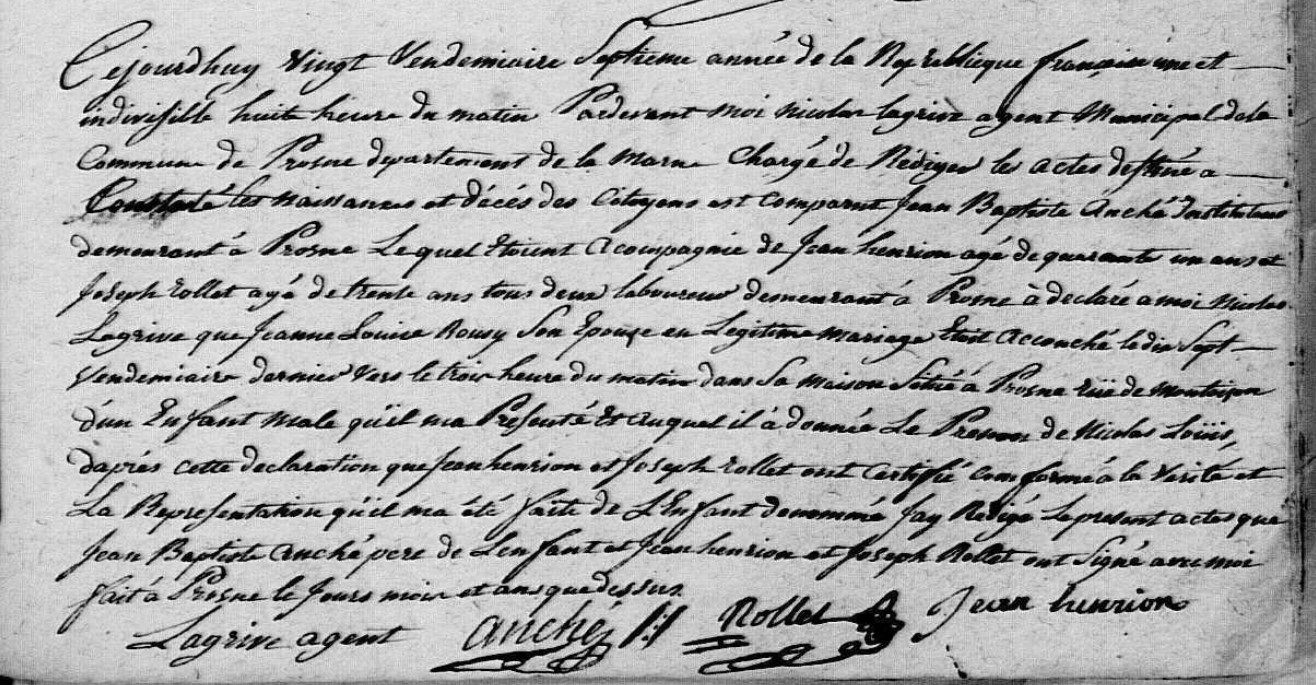 Cejourdhuy vingt Vendemiaire Septieme année de la Republicque française une et
indivisible huit heure du matin Pardevant moi nicolas lagrive agent Municipal dela
Commune de Prosne departement de la marne Chargé de Rédiger les actes destiné a
Constaté les naissances et décés des Citoyens est comparut Jean Baptiste anché Instituteur
demeurant à Prosne Lequel Etoient acompagnie de Jean henrion agé de quarante un ans et
Joseph rollet agé de trente ans tous deux laboureur demeurant à Prosne à declaré a moi Nicolas
Lagrive que Jeanne Louise Rousy Son Epouse en Legitime mariage Etoit accouché ledix Sept
Vendemiaire dernier vers le trois heure du matin dans Sa maison Situé à Prosne rüe de
d'un Enfant male qu'il ma Présenté Et auquel il à donnée Le Prenom de Nicolas Loüis,
daprés cette declaration que Jean henrion et Joseph rollet ont certifié conforme à la verité et
La Representation qu'il ma été faite de L'Enfant denommé Jay Redigé Le present actes que
Jean Baptiste anché pere de Lenfant et Jean henrion et Joseph Rollet ont Signé avec moi
fait à Prosne le Jours mois et ans que dessus
Lagrive agent anché Rollet Jean henrion